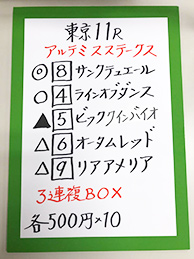 東京11R
アルテミスステークス
◎8サンクテュエール
○4ラインオブダンス
▲5ビッククインバイオ
△6オータムレッド
△9リアアメリア
3連複BOX
各500円×10